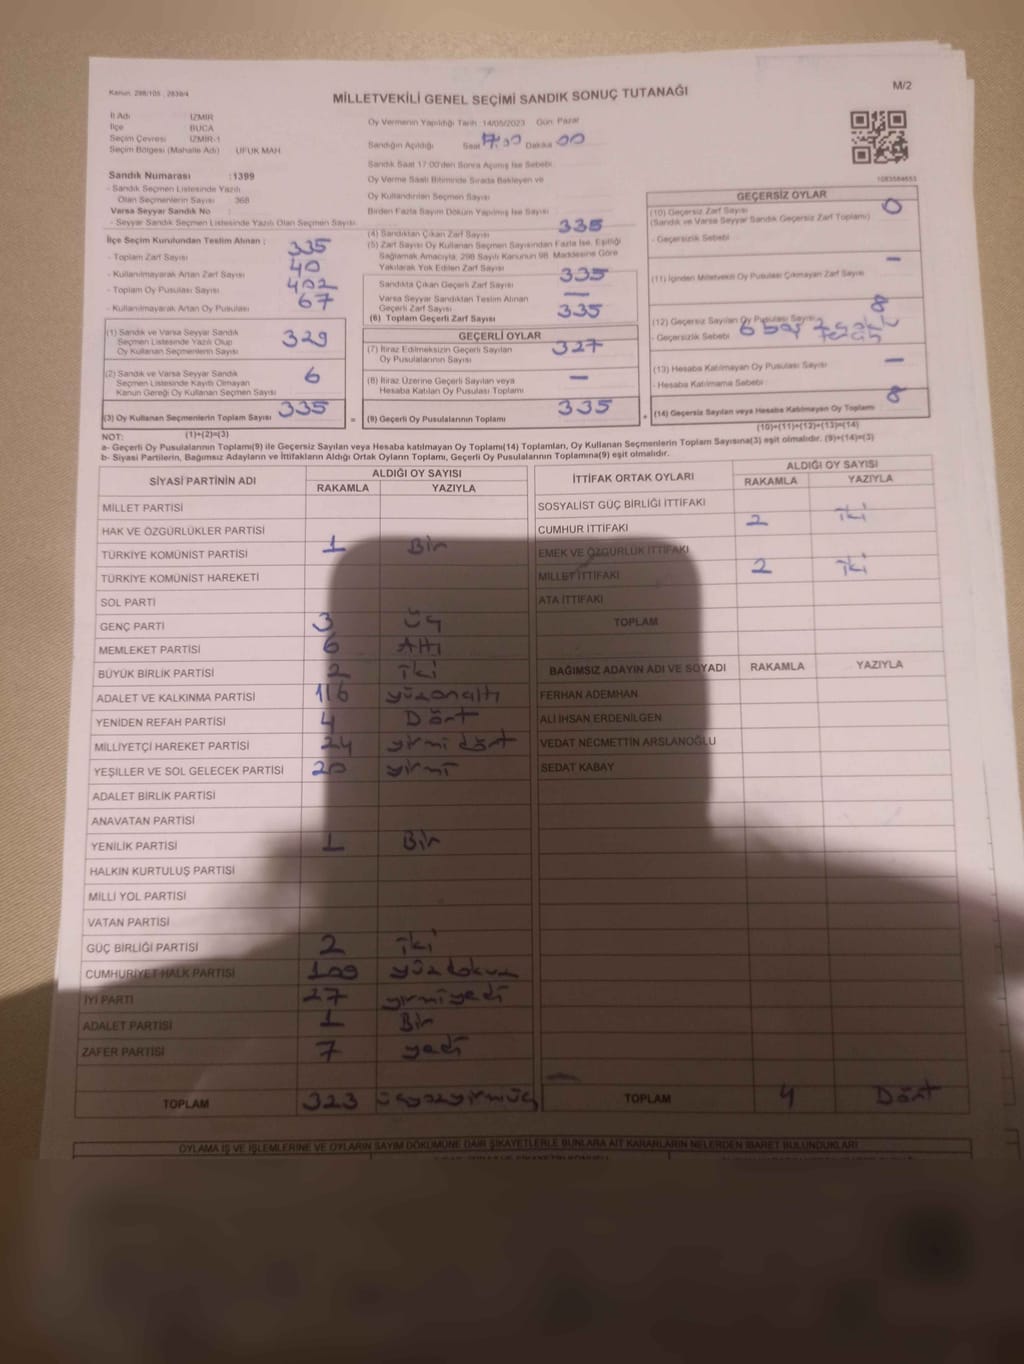 Kanun: 298/105 , 2839/4
MİLLETVEKİLİ GENEL SEÇİMİ SANDIK SONUÇ TUTANAĞI
M/2
İl Adı İZMİR
İlçe BUCA
Seçim Çevresi İZMİR-1
Seçim Bölgesi (Mahalle Adı) UFUK MAH.
Sandık Numarası :1399
- Sandık Seçmen Listesinde Yazılı
Olan Seçmenlerin Sayısı : 368
Varsa Seyyar Sandık No
- Seyyar Sandık Seçmen Listesinde Yazılı Olan Seçmen Sayısı:
İlçe Seçim Kurulundan Teslim Alınan :
- Toplam Zarf Sayısı 335
- Kullanılmayarak Artan Zarf Sayısı 40
- Toplam Oy Pusulası Sayısı 402
- Kullanılmayarak Artan Oy Pusulası 67
(1) Sandık ve Varsa Seyyar Sandık
Seçmen Listesinde Yazılı Olup
Oy Kullanan Seçmenlerin Sayısı 329
(2) Sandık ve Varsa Seyyar Sandık
Seçmen Listesinde Kayıtlı Olmayan
Kanun Gereği Oy Kullanan Seçmen Sayısı 6
(3) Oy Kullanan Seçmenlerin Toplam Sayısı 335
Oy Vermenin Yapıldığı Tarih: 14/05/2023 Gün: Pazar
Sandığın Açıldığı Saat 17:30 Dakika 00
Sandık Saat 17:00'den Sonra Açılmış İse Sebebi
Oy Verme Saati Bitiminde Sırada Bekleyen ve
Oy Kullandırılan Seçmen Sayısı
Birden Fazla Sayım Döküm Yapılmış İse Sayısı
(4) Sandıktan Çıkan Zarf Sayısı 335
(5) Zarf Sayısı Oy Kullanan Seçmen Sayısından Fazla İse, Eşitliği
Sağlamak Amacıyla, 298 Sayılı Kanunun 98. Maddesine Göre
Yakılarak Yok Edilen Zarf Sayısı
Sandıkta Çıkan Geçerli Zarf Sayısı 335
Varsa Seyyar Sandıktan Teslim Alınan
Geçerli Zarf Sayısı —
(6) Toplam Geçerli Zarf Sayısı 335
GEÇERLİ OYLAR
(7) İtiraz Edilmeksizin Geçerli Sayılan
Oy Pusulalarının Sayısı 327
(8) İtiraz Üzerine Geçerli Sayılan veya
Hesaba Katılan Oy Pusulası Sayısı —
= (9) Geçerli Oy Pusulalarının Toplamı 335
1083584653
GEÇERSİZ OYLAR
(10) Geçersiz Zarf Sayısı
(Sandık ve Varsa Seyyar Sandık Geçersiz Zarf Toplamı) 0
- Geçersizlik Sebebi
(11) İçinden Milletvekili Oy Pusulası Çıkmayan Zarf Sayısı —
(12) Geçersiz Sayılan Oy Pusulası Sayısı 8
- Geçersizlik Sebebi 6 boş
(13) Hesaba Katılmayan Oy Pusulası Sayısı —
- Hesaba Katılmama Sebebi
+ (14) Geçersiz Sayılan veya Hesaba Katılmayan Oy Toplamı 8
NOT: (1)+(2)=(3)
(10)+(11)+(12)+(13)=(14)
a- Geçerli Oy Pusulalarının Toplamı(9) ile Geçersiz Sayılan veya Hesaba katılmayan Oy Toplamı(14) Toplamları, Oy Kullanan Seçmenlerin Toplam Sayısına(3) eşit olmalıdır. (9)+(14)=(3)
b- Siyasi Partilerin, Bağımsız Adayların ve İttifakların Aldığı Ortak Oyların Toplamı, Geçerli Oy Pusulalarının Toplamına(9) eşit olmalıdır.
SİYASİ PARTİNİN ADI ALDIĞI OY SAYISI
RAKAMLA YAZIYLA
MİLLET PARTİSİ
HAK VE ÖZGÜRLÜKLER PARTİSİ
TÜRKİYE KOMÜNİST PARTİSİ 1 Bir
TÜRKİYE KOMÜNİST HAREKETİ
SOL PARTİ
GENÇ PARTİ 3 Üç
MEMLEKET PARTİSİ 6 Altı
BÜYÜK BİRLİK PARTİSİ 2 iki
ADALET VE KALKINMA PARTİSİ 116 yüzonaltı
YENİDEN REFAH PARTİSİ 4 Dört
MİLLİYETÇİ HAREKET PARTİSİ 24 yirmi dört
YEŞİLLER VE SOL GELECEK PARTİSİ 20 yirmi
ADALET BİRLİK PARTİSİ
ANAVATAN PARTİSİ
YENİLİK PARTİSİ 1 Bir
HALKIN KURTULUŞ PARTİSİ
MİLLİ YOL PARTİSİ
VATAN PARTİSİ
GÜÇ BİRLİĞİ PARTİSİ 2 iki
CUMHURİYET HALK PARTİSİ 109 yüzdokuz
İYİ PARTİ 27 yirmiyedi
ADALET PARTİSİ 1 Bir
ZAFER PARTİSİ 7 yedi
TOPLAM 323 üçyüzyirmiüç
İTTİFAK ORTAK OYLARI ALDIĞI OY SAYISI
RAKAMLA YAZIYLA
SOSYALİST GÜÇ BİRLİĞİ İTTİFAKI
CUMHUR İTTİFAKI 2 iki
EMEK VE ÖZGÜRLÜK İTTİFAKI
MİLLET İTTİFAKI 2 iki
ATA İTTİFAKI
TOPLAM
BAĞIMSIZ ADAYIN ADI VE SOYADI RAKAMLA YAZIYLA
FERHAN ADEMHAN
ALİ İHSAN ERDENİLGEN
VEDAT NECMETTİN ARSLANOĞLU
SEDAT KABAY
—
TOPLAM 4 Dört
OYLAMA İŞ VE İŞLEMLERİNE VE OYLARIN SAYIM DÖKÜMÜNE DAİR ŞİKAYETLERLE BUNLARA AİT KARARLARIN NELERDEN İBARET BULUNDUKLARI